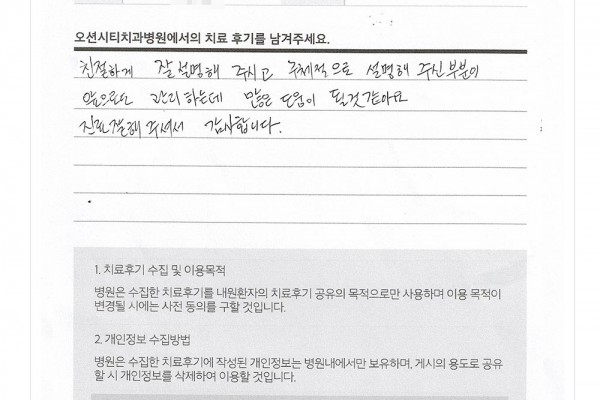 오션시티치과병원에서의 치료 후기를 남겨주세요.
친절하게 잘 설명해 주시고 구체적으로 설명해 주신 부분이
앞으로도 관리하는데 많은 도움이 될것 같아요
진료 잘해 주셔서 감사합니다.
1. 치료후기 수집 및 이용목적
병원은 수집한 치료후기를 내원환자의 치료후기 공유의 목적으로만 사용하며 이용 목적이
변경될 시에는 사전 동의를 구할 것입니다.
2. 개인정보 수집방법
병원은 수집한 치료후기에 작성된 개인정보는 병원내에서만 보유하며, 게시의 용도로 공유
할 시 개인정보를 삭제하여 이용할 것입니다.